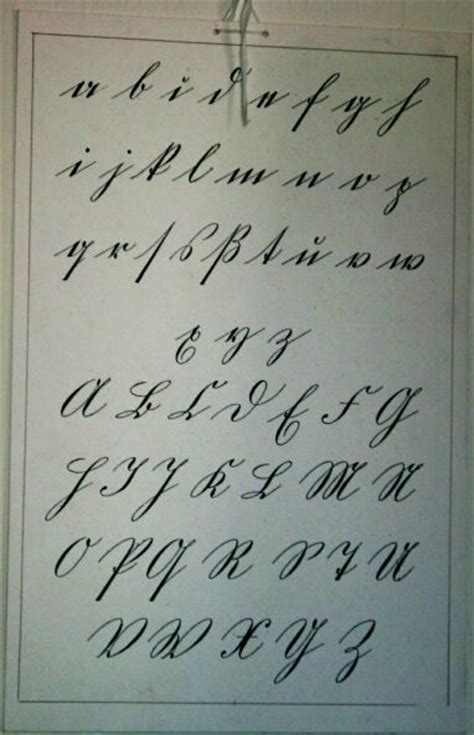 a b c d e f g h
i j k l m n o p
q r ſ s ß t u v w
x y z
A B C D E F G
H I J K L M N
O P Q R S T U
V W X Y Z